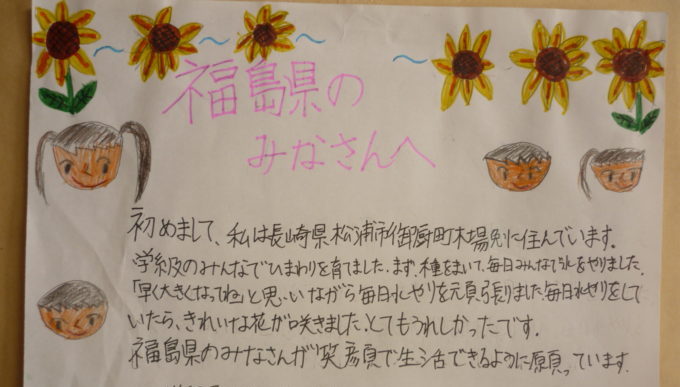 福島県の
みなさんへ
初めまして、私は長崎県松浦市御厨町木場免に住んでいます。
学級のみんなでひまわりを育てました。まず、種をまいて、毎日みんなで水をやりました。
「早く大きくなってね」と思いながら毎日水やりを元頑張りました。毎日水やりをして
いたら、きれいな花が咲きました。とてもうれしかったです。
福島県のみなさんが笑顔で生活できるように願っています。